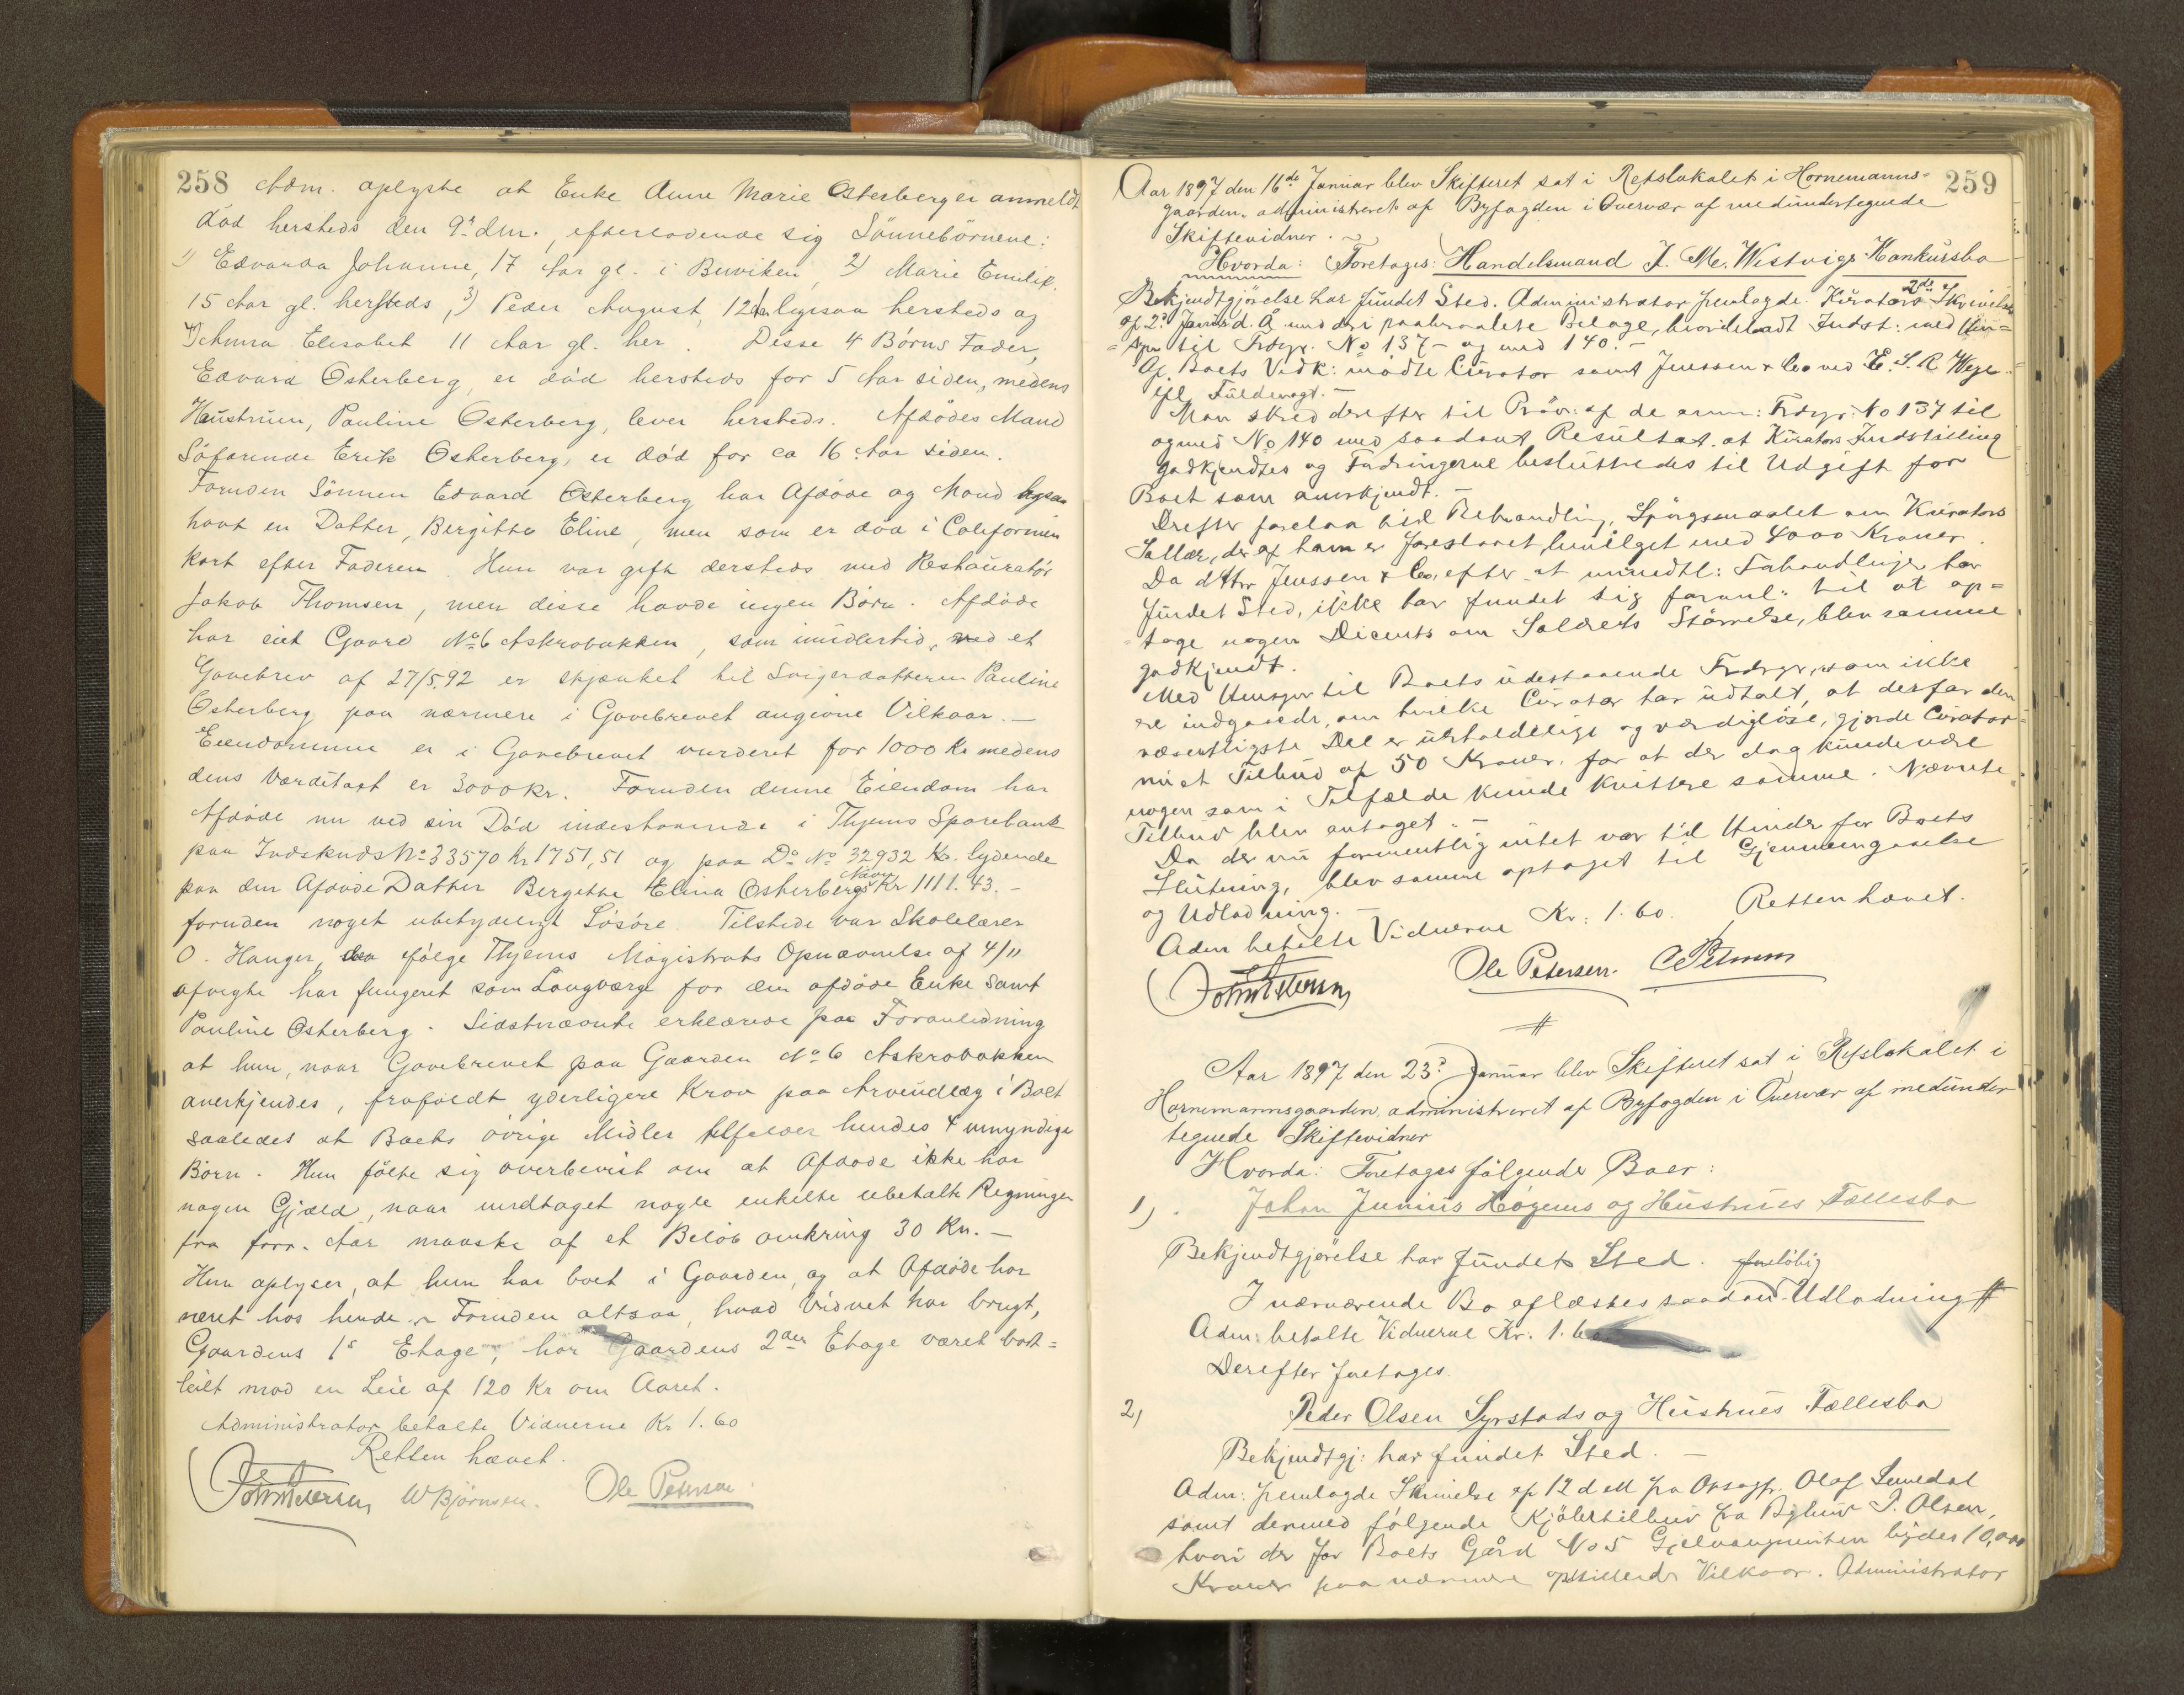 258 Adm. oplyste at Enke Anne Marie Osterberg er anmeldt
död hersteds den 9d dm., efterladende sig Sönnebörnene:
1) Edvarda Johanne, 17 Aar gl. i Buviken, 2) Marie Emilie
15 Aar gl. hersteds, 3) Peder August, 12 ligesaa hersteds og
4) Anna Elisabet 11 Aar gl. her. Disse 4 Börns Fader,
Edvard Osterberg, er död hersteds for 5 Aar siden, medens
Hustruen, Pauline Osterberg, lever hersteds. Afdödes Mand
Söfarende Erik Osterberg, er död for ca 16 Aar siden.
Foruden Sönnen Edvard Osterberg har Afdöde og Mand
havt en Datter, Bergitte Eline, men som er död i Californien
kort efter Faderen. Hun var gift dersteds med Restauratör
Jakob Thomsen, men disse havde ingen Börn. Afdöde
har eiet Gaard No 6 Askrobakken, som imidlertid, ved et
Gavebrev af 27/5.92 er skjænket til Svigerdatteren Pauline
Osterberg paa nærmere i Gavebrevet angivne Vilkaar.—
Eiendommen er i Gavebrevet vurderet for 1000 Kr medens
dens Værditaxt er 3000 Kr. Foruden denne Eiendom har
Afdöde nu ved sin Död indestaaende i Thjems Sparebank
paa Indskuds No 33570 Kr 1751,51 og paa Do No 32932 lydende
paa den Afdöde Datter Bergitte Elina Osterbergs Navn Kr 1111.43.—
foruden noget ubetydeligt Lösöre. Tilstede var Skolelærer
O. Hanger, der ifölge Thjems Magistrats Opnævnelse af 4/11
afvigte har fungeret som Laugværge for den afdöde Enke samt
Pauline Osterberg. Sidstnævnte erklærede paa Foranledning
at hun, naar Gavebrevet paa Gaarden No 6 Askrobakken
anerkjendes, frafaldt yderligere Krav paa Arveudlæg i Boet
saaledes at Boets övrige Midler tilfalder hendes 4 umyndige
Börn. Hun fölte sig overbevist om at Afdöde ikke har
nogen Gjæld, naar undtaget nogle enkelte ubetalte Regninger
fra forr. Aar maaske af et Belöb omkring 30 Kr.—
Hun oplyser, at hun har boet i Gaarden, og at Afdöde har
været hos hende. Foruden altsaa, hvad Vidnet har brugt,
Gaardens 1s Etage, har Gaardens 2den Etage været bort=
leiet mod en Leie af 120 Kr om Aaret.
Administrator betalte Vidnerne Kr 1.60
Retten hævet.
W Björnsen. Ole Petersen.
259
Aar 1897 den 16de Januar blev Skifteret sat i Retslokalet i Hornemanns=
gaarden, administreret af Byfogden i Overvær af medundertegnede
Skiftevidner.
Hvorda: Foretages: Handelsmand J. Me. Westvigs Konkursbo
Bekjendtgjörelse har fundet Sted. Administrator fremlagde Kurators 2de Skrivelser
af 2d Januar d. A. med deri paaberaabte Bilage, Indst: med Hen=
=syn til Fordgr. No 137 – og med 140.—
Af Boets Vedk: mödte Curator samt Jenssen & Co ved E. S. R Wege
ifl. Fuldmagt.—
Man skred derefter til Pröv: af de anm: Fordgr: No 137 til
og med No 140 med saadant Resultat, at Kurators Indstilling
godkjendtes og Fordringerne besluttedes til Udgift for
Boet som anerkjendt.—
Derefter forelaa til Behandling, Spörgsmaalet om Kurators
Sallær, der af ham er foreslaaet bevilget med 4000 Kroner.
Da dHrr Jenssen & Co, efter at mundtl: Forhandlinger har
fundet Sted, ikke har fundet sig foranl. til at op=
=tage nogen Dicents om Salærets Störrelse, blev samme
godkjendt.
Med Hensyn til Boets udestaaende Fordrgr, som ikke
ere indgaaede, om hvilke Curator har udtalt, at derfor den
væsentligste Del er uerholdelige og værdilöse, gjorde Curator
nu et Tilbud af 50 Kroner, for at der dog kunde være
nogen som i Tilfælde kunde kvittere samme. Nævnte
Tilbud blev antaget.—
Da der nu formentlig intet var til Hinder for Boets
Slutning, blev samme optaget til Gjennemgaaelse
og Udlodning.—
Adm betalte Vidnerne Kr: 1.60. Retten hævet.
Ole Petersen. C Petersen
Aar 1897 den 23d Januar blev Skifteret sat i Retslokalet i
Hornemannsgaarden, administreret af Byfogden i Overvær af medunder
tegnede Skiftevidner
Hvorda: Foretages fölgende Boer:
1). Johan Junius Høgems og Hustrues Fællesbo
Bekjendtgjörelse har fundet Sted. foreløbig
I nærværende Bo aflæstes saadan Udlodning #
Adm: betalte Vidnerne Kr. 1.60
Derefter foretages.
2) Peder Olsen Syrstads og Hustrues Fællesbo
Bekjendtgj: har fundet Sted.—
Adm: fremlagde Skrivelse af 12 d M fra Ovsagf. Olaf Lenedal
samt dermed fölgende Kjöbstilbud fra P. Olsen,
hvori der for Boets Gård No 5 bydes 10,000
Kroner paa nærmere opstillede Vilkaar. Administrator